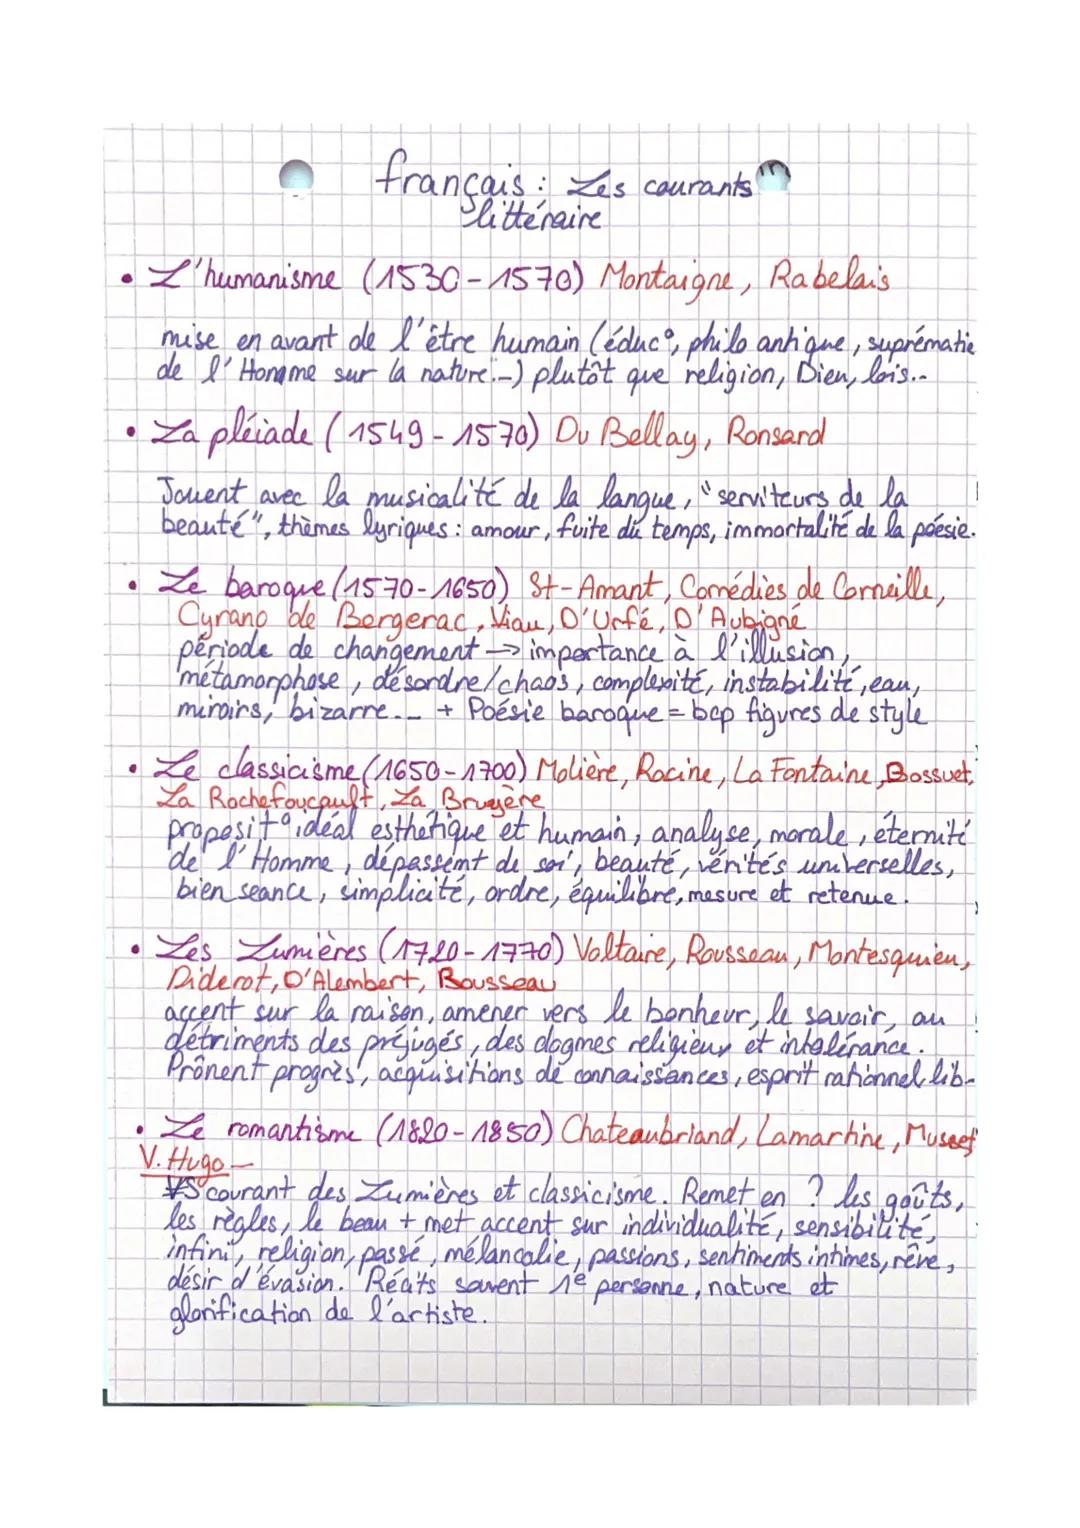 français : Les courants
littéraire
• L'humanisme (1530-1570) Montaigne, Rabelais
mise en avant de l'être humain (éduc°, philo antique, suprématie
de l'Homme sur la nature...) plutôt que religion, Dieu, lois...
• La pléiade (1549-1570) Du Bellay, Ronsard
Jouent avec la musicalité de la langue, "serviteurs de la
beauté", thèmes lyriques : amour, fuite du temps, immortalité de la poésie.
• Le baroque (1570-1650) St-Amant, Comédies de Corneille,
Cyrano de Bergerac, Viau, D'Urfé, D'Aubigné
période de changement → importance à l'illusion,
métamorphose, désordre/chaos, complexité, instabilité, eau,
miroirs, bizarre... + Poésie baroque = bcp figures de style
• Le classicisme (1650-1700) Molière, Racine, La Fontaine, Bossuet,
La Rochefoucault, La Bruyère
proposit° idéal esthétique et humain, analyse, morale, éternité
de l'Homme, dépassemt de soi, beauté, vérités universelles,
bien seance, simplicité, ordre, équilibre, mesure et retenue.
• Les Lumières (1720-1770) Voltaire, Rousseau, Montesquieu,
Diderot, D'Alembert, Bousseau
accent sur la raison, amener vers le bonheur, le savoir, au
détriments des préjugés, des dogmes religieux et intolérance.
Prônent progrès, acquisitions de connaissances, esprit rationnel, lib-
• Le romantisme (1820-1850) Chateaubriand, Lamartine, Musset
V. Hugo -
VS courant des Lumières et classicisme. Remet en ? les goûts,
les règles, le beau + met accent sur individualité, sensibilité,
infini, religion, passé, mélancolie, passions, sentiments intimes, rêve,
désir d'évasion. Récits souvent 1e personne, nature et
glorification de l'artiste.